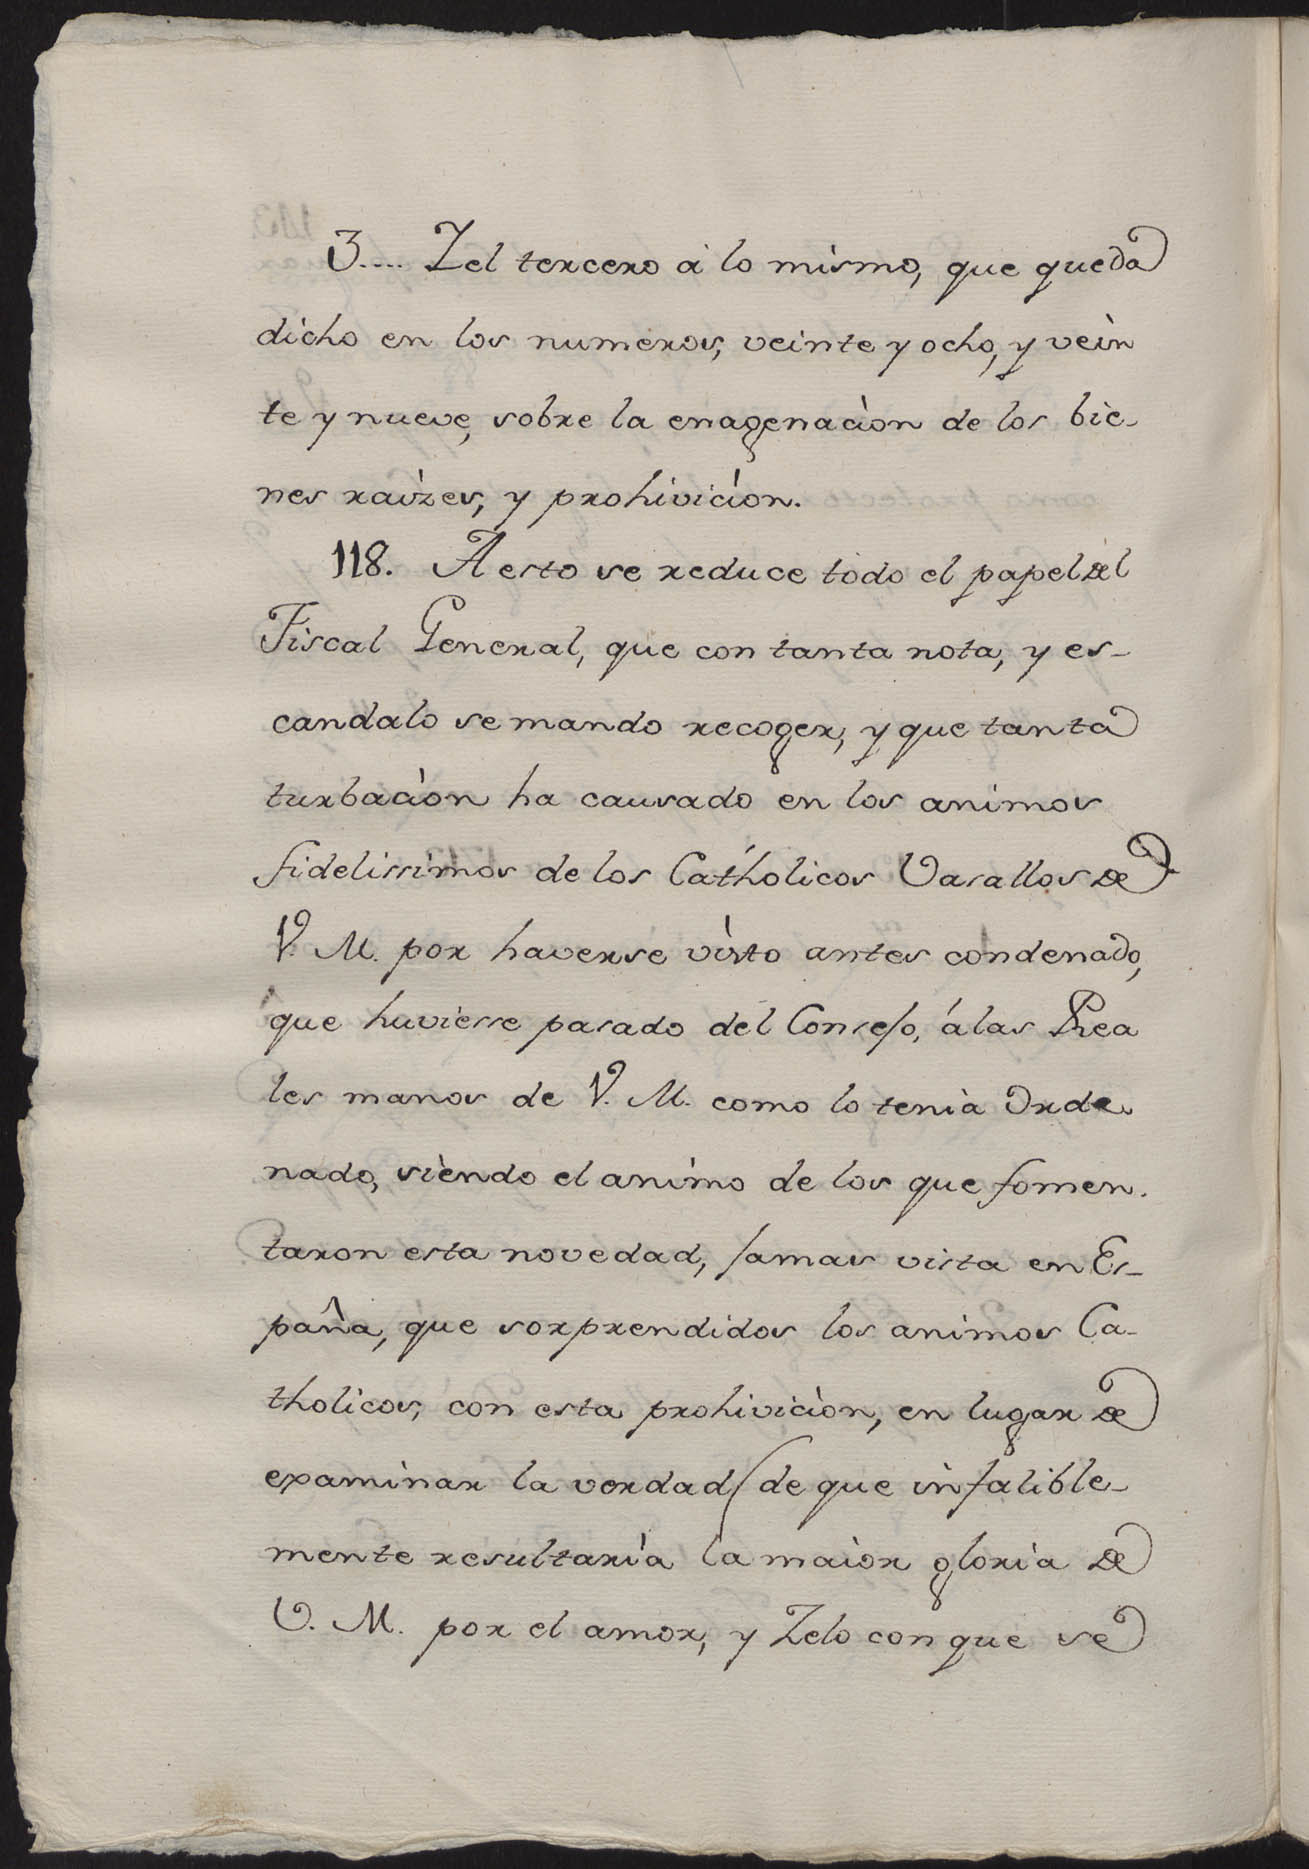 3.... Y el tercero à lo mismo, que queda
dicho en los numeros, veinte y ocho, y vein
te y nueve, sobre la enagenacion de los bie-
nes raizes, y prohivicion.
118. A esto se reduce todo el papel del
Fiscal General, que con tanta nota, y es-
candalo se mando recoger, y que tanta
turbacion ha causado en los animos
fidelissimos de los Catholicos Vasallos de
V. M. por haverse visto antes condenado,
que huviesse pasado del Consejo, á las Rea
les manos de V. M. como lo tenia Orde
nado, siendo el animo de los que fomen-
taron esta novedad, jamas vista en Es-
paña, que sorprendidos los animos Ca-
tholicos, con esta prohivicion, en lugar de
examinar la verdad (de que infalible-
mente resultaria la maior gloria de
V. M. por el amor, y Zelo con que se